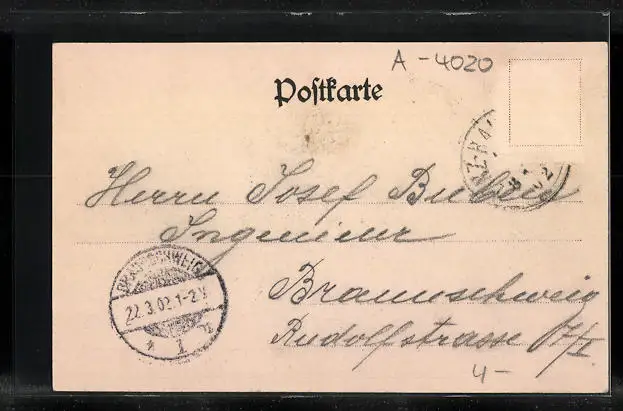 A-4020
Postkarte
Herrn Josef
Ingenieur
BRAUNSCHWEIG
22.3.02.1-2N
* 1 *
Braunschweig
Rudolfstrasse
4-